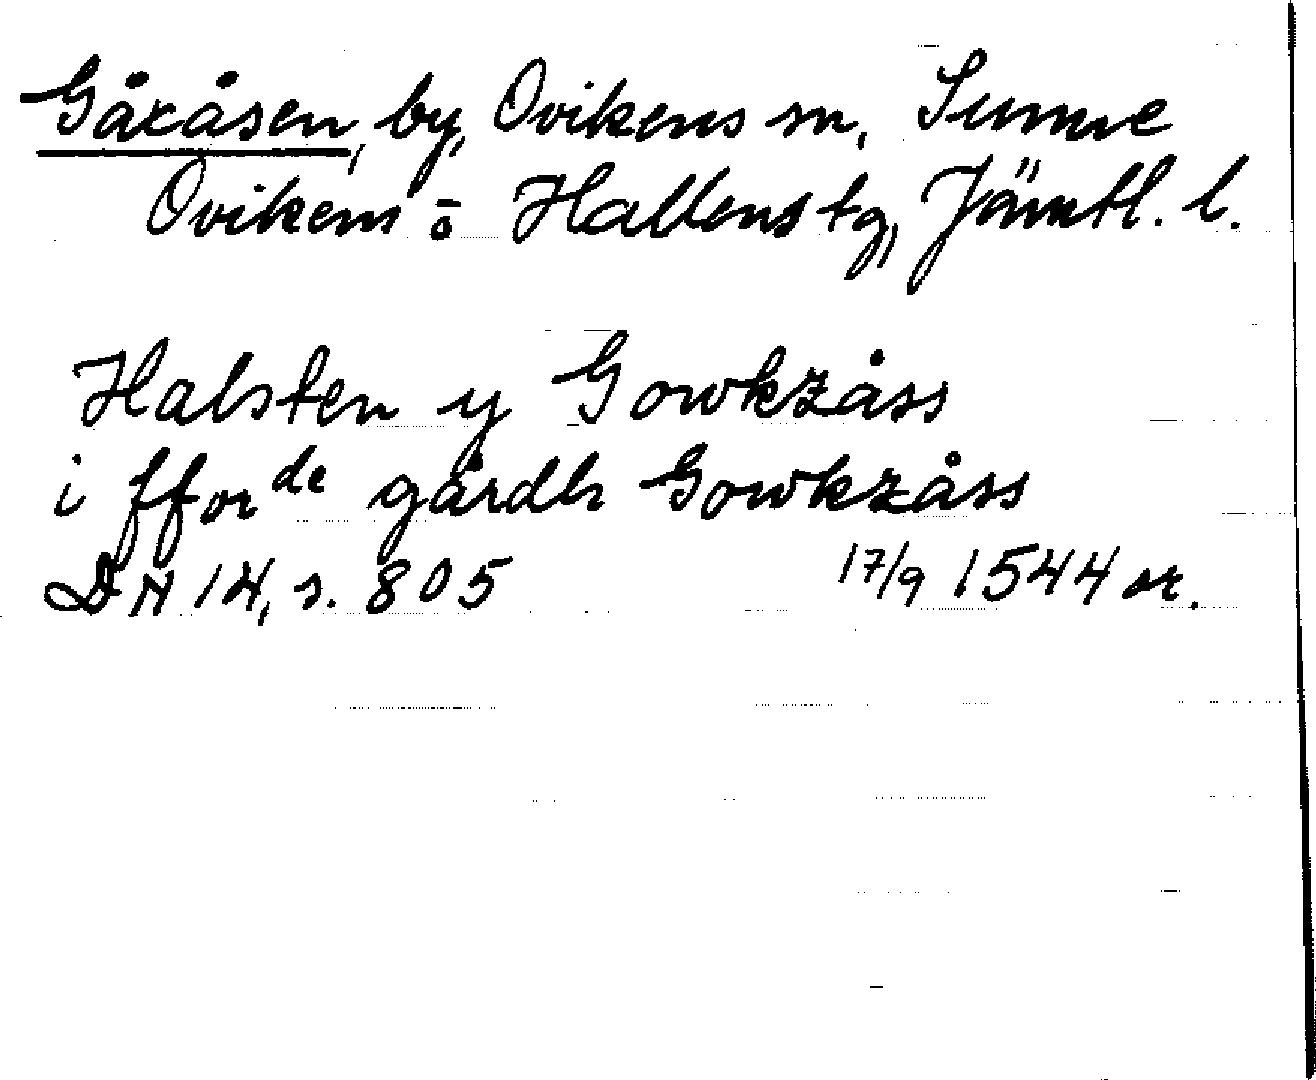 Gåxåsen, by, Ovikens sn, Sunne
Ovikens o Hallens tg, Jämtl. l.
Halsten y Gowkzåss
i fforde gårdh Gowkzåss
DN 14, s. 805 17/9 1544 or.